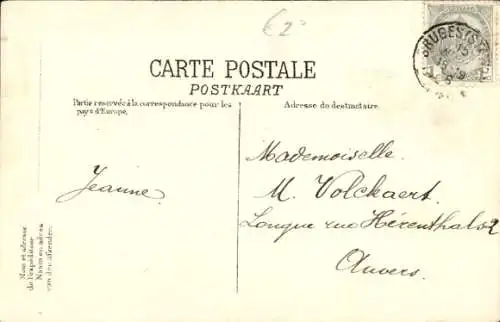 €2-
BRUGES (STATION)
CARTE POSTALE
POSTKAART
Partie reservée à la correspondance pour les
pays d'Europe.
Adresse du destinataire.
Jeanne.
Mademoiselle.
M. Volckaert.
Longue rue Hérenthals
Anvers.
Nom et adresse
de l'expéditeur
Naam en adres
van den afzender.